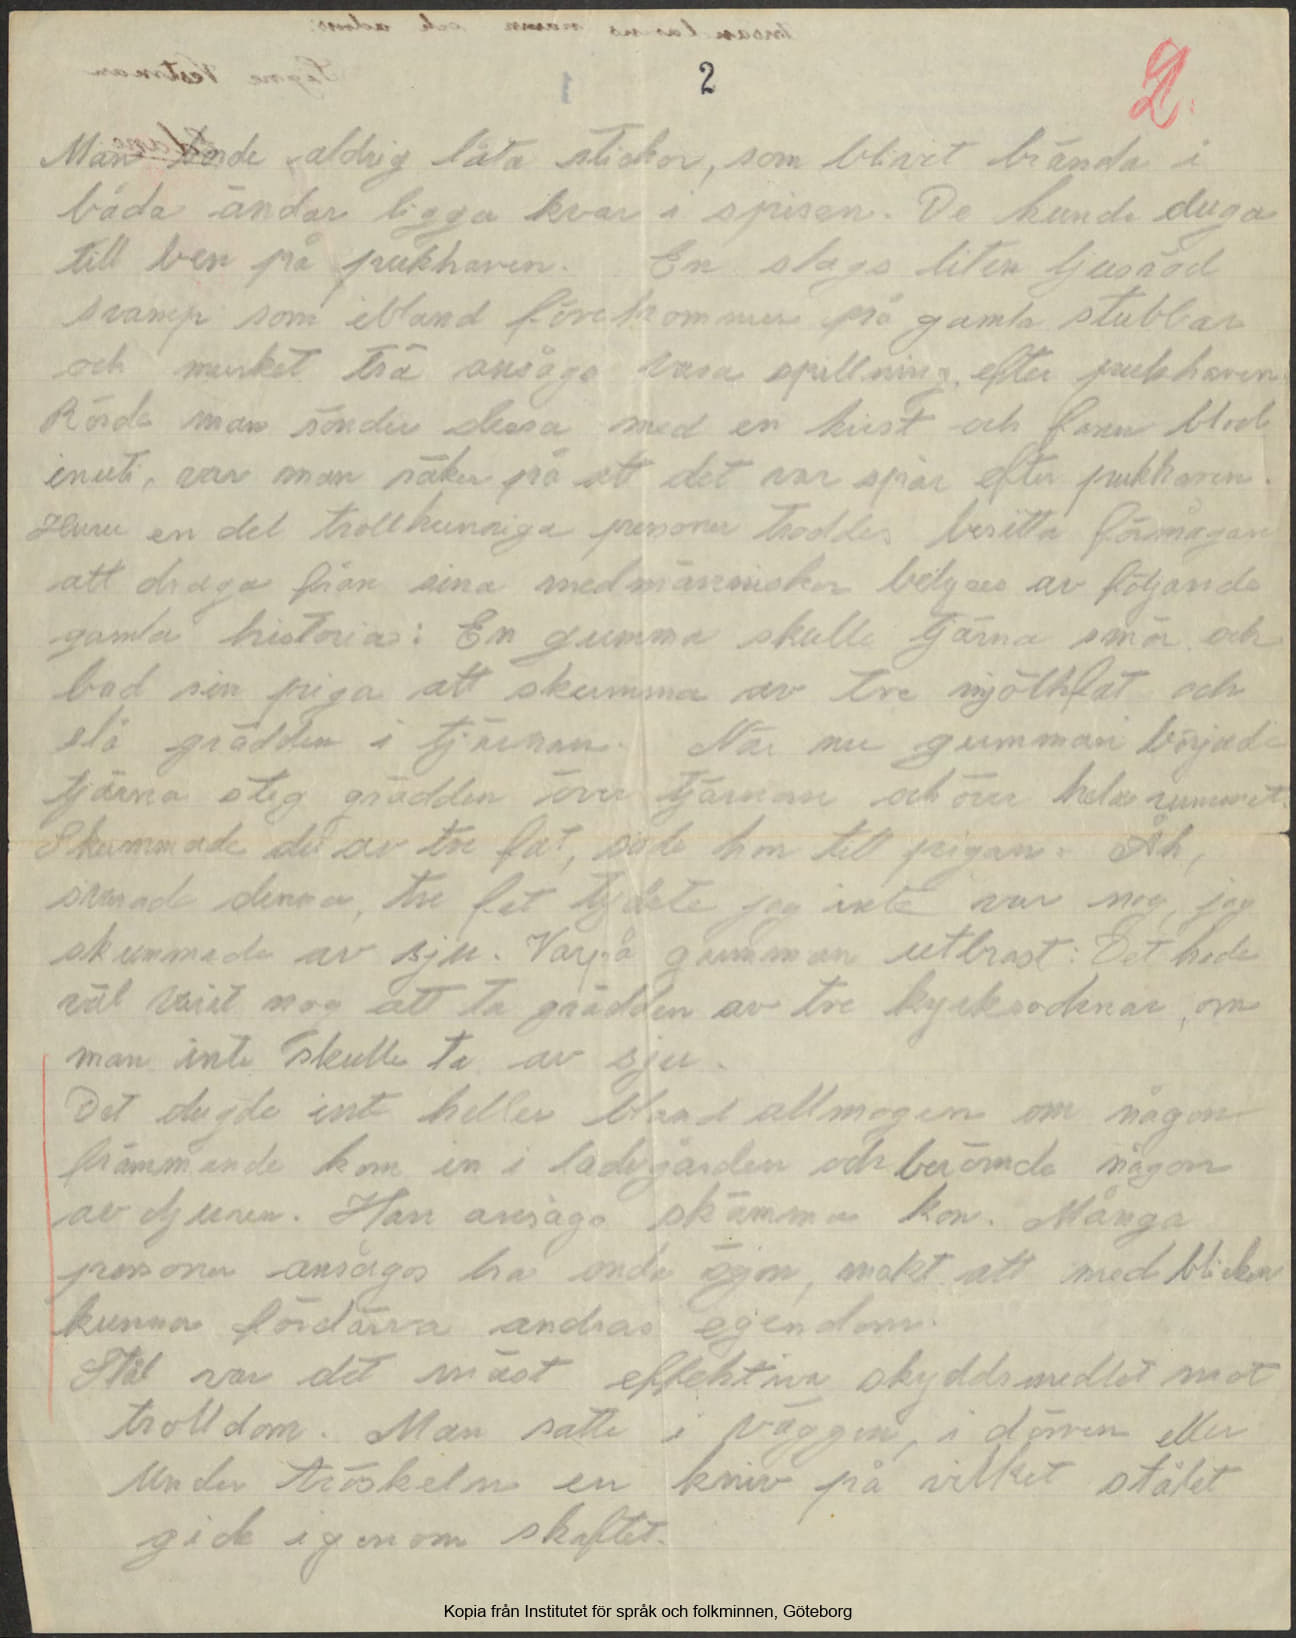 2
2.
Man borde aldrig låta stickor, som blivit brända i
båda ändar ligga kvar i spisen. De kunde duga
till ben på pukharen. En slags liten ljusröd
svamp som ibland förekommer på gamla stubbar
och murket trä ansågs vara spillning efter pukharen
Rörde man sönder dessa med en kvist och fann blod
inuti, var man säker på att det var spår efter pukharen.
Huru en del trollkunniga personer troddes besitta förmågan
att draga från sina medmänniskor belyses av följande
gamla historia: En gumma skulle tjärna smör och
bad sin piga att skumma av tre mjölkfat och
slå grädden i tjärnan. När nu gumman började
tjärna steg grädden över tjärnan och över hela rummet.
Skummade du av tre fat, sade hon till pigan. Åh,
svarade denna, tre fat tyckte jag inte var nog, jag
skummade av sju. Varpå gumman utbrast: Det hade
väl varit nog att ta grädden av tre kyrksocknar, om
man inte skulle ta av sju.
Det dugde inte heller bland allmogen om någon
främmande kom in i ladugården och berömde någon
av djuren. Han ansågs skämma kon. Många
personer ansågos ha onda ögon, makt att med blicken
kunna fördärva andras egendom.
Stål var det mäst effektiva skyddsmedlet mot
trolldom. Man satte i väggen, i dörren eller
under tröskeln en kniv på vilket stålet
gick igenom skaftet.
Kopia från Institutet för språk och folkminnen, Göteborg